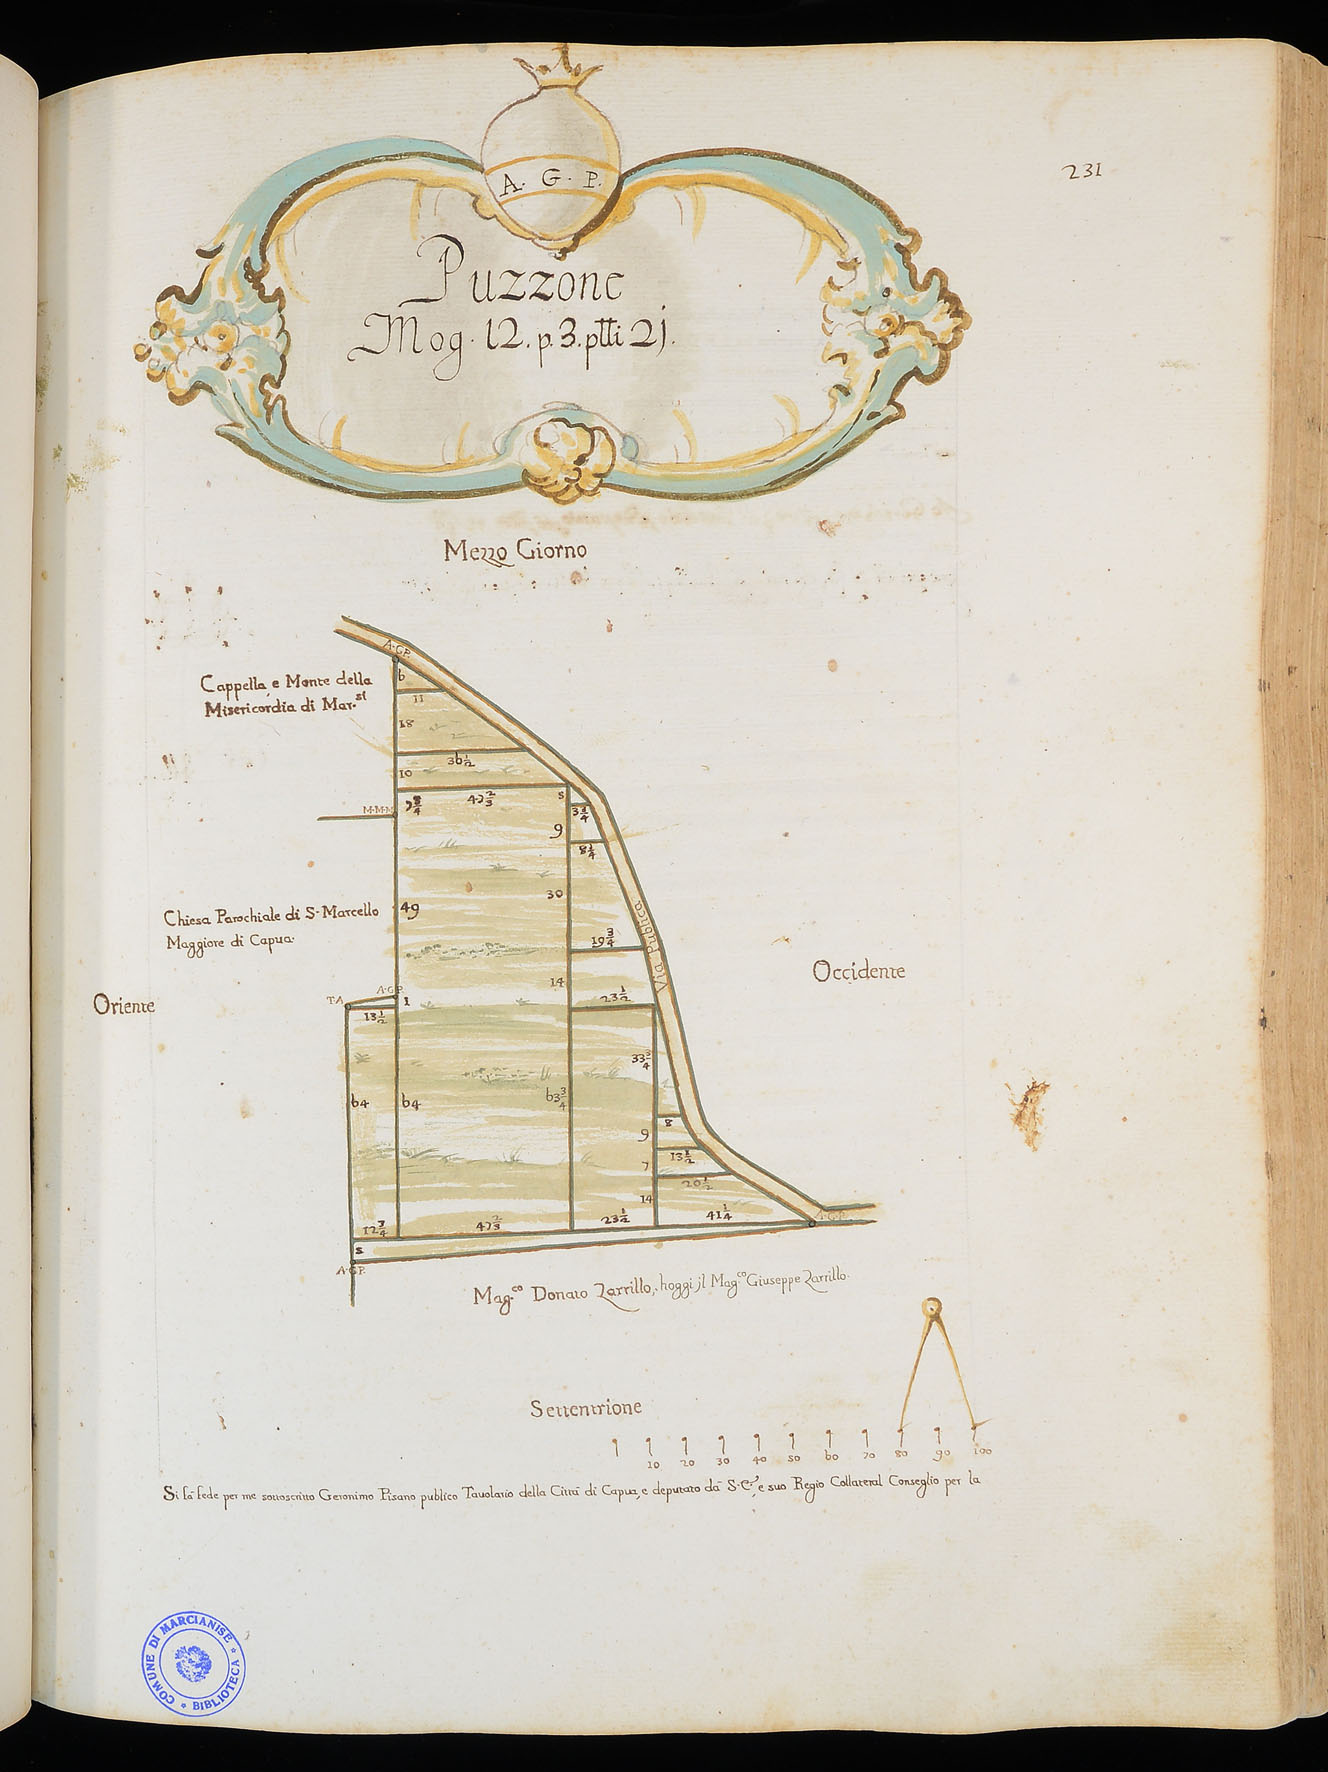 231
A. G. P.
Puzzone
Mog. 12. p. 3. ptti 2j.
Mezzo Giorno
A.G.P.
Cappella, e Monte della
Misericordia di Mar.si
b
11
18
3b 1/2
10
M.M.M.
47 2/3
s
3 1/4
9
8 1/4
30
49
Chiesa Parochiale di S. Marcello
Maggiore di Capua.
19 3/4
Via Publica
Occidente
14
Oriente
T.A.
A.G.P.
1
23 1/2
13 1/2
33 3/4
b4
b4
b3 3/4
8
9
13 1/2
7
20 1/2
14
12 3/4
47 2/3
23 1/2
41 1/4
A.G.P.
s
A.G.P.
Mag.co Donato Zarrillo, hoggi jl Mag.co Giuseppe Zarrillo.
Settentrione
10 20 30 40 50 b0 70 80 90 100
Si fà fede per me sottoscritto Geronimo Pisano publico Tavolario della Città di Capua, e deputato dà S. E., e suo Regio Collateral Conseglio per la
COMUNE DI MARCIANISE
* BIBLIOTECA *